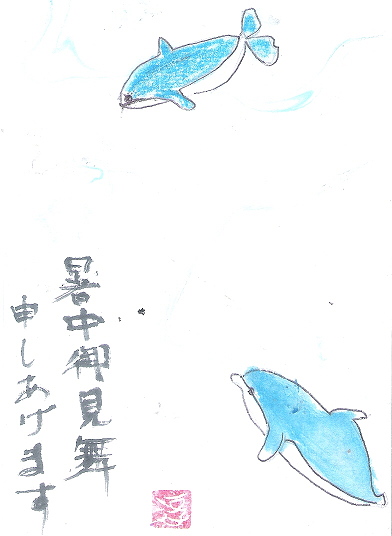 暑中御見舞
申しあげます